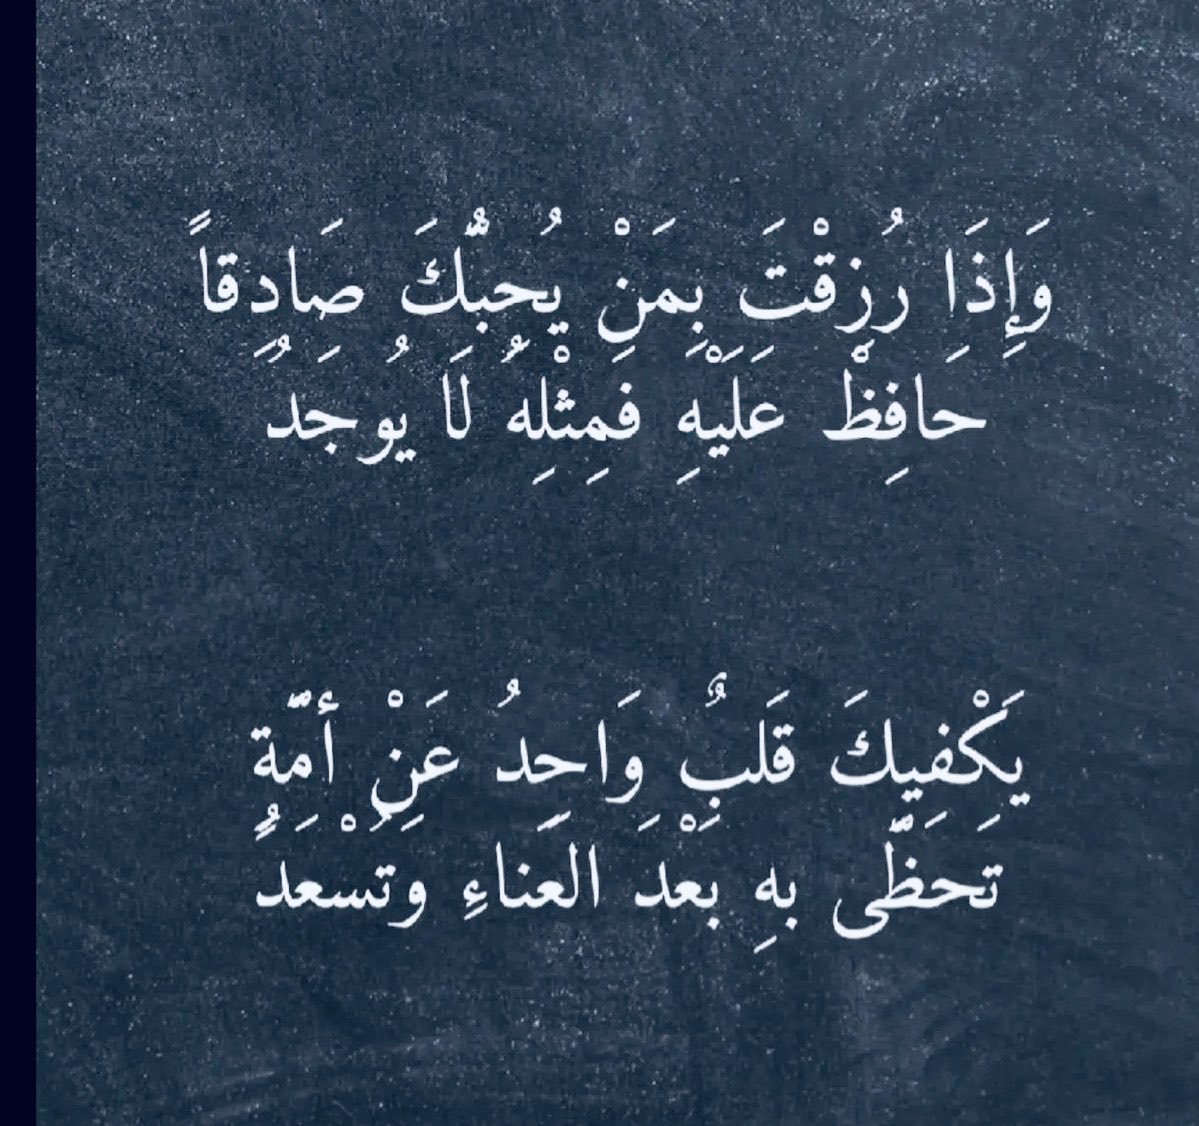 وَإِذَا رُزِقْتَ بِمَنْ يُحبُّكَ صَادِقاً
حَافِظْ عَلَيْهِ فَمِثْلِهُ لَا يُوجَدُ
يَكْفِيكَ قَلبٌ وَاحِدُ عَنْ أمّةٍ
تَحَظّى بهِ بَعْدَ العَناءِ وَتُسْعَدُ